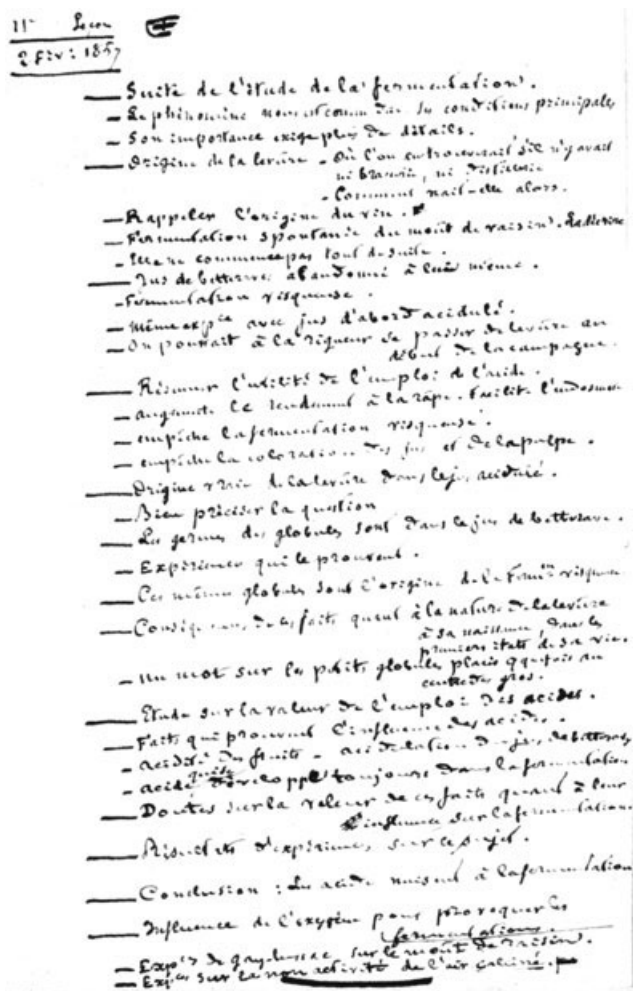 11e Leçon
2 Fév: 1857
Suite de l'étude de la fermentation.
Le phénomène nous est connu dans ses conditions principales
Son importance exige plus de détails.
Origine de la levûre - Où l'on en trouverait s'il n'y avait
ni brasserie, ni distillerie
- Comment naît-elle alors.
- Rappeler l'origine du vin.
- Fermentation spontanée du moût de raisin.
- Elle ne commence pas tout de suite.
Jus de betteraves abandonné à lui même.
- Fermentation visqueuse.
- Même expce avec jus d'abord acidulé.
- On pourrait à la rigueur se passer de levûre au
début de la campagne.
Résumer l'utilité de l'emploi de l'acide.
- augmente le rendement à la râpe. facilite l'endosmose
- empêche la fermentation visqueuse.
- empêche la coloration des jus et de la pulpe.
Origine vraie de la levûre dans le jus acidulé.
- Bien préciser la question
- Les germes des globules sont dans le jus de betterave.
- Expériences qui le prouvent.
- Ces mêmes globules sont l'origine de la Fermon visqueuse
- Conséquences de ces faits quant à la nature de la levûre
à sa naissance, dans les
premiers états de sa vie.
- un mot sur les petits globules placés qquefois au
centre des gros.
Etude sur la valeur de l'emploi des acides.
- Faits qui prouvent l'influence des acides.
- acidité des fruits - acidulation du jus de betteraves
- acide qui se développe toujours dans la fermentation
- Doutes sur la valeur de ces faits quant à leur
influence sur la fermentation
Résultats d'expériences sur ce sujet.
Conclusion : Les acides nuisent à la fermentation
Influence de l'oxygène pour provoquer les
fermentations.
- Expces de gay-lussac sur le moût de raisin.
- Expces sur la non activité de l'air calciné.